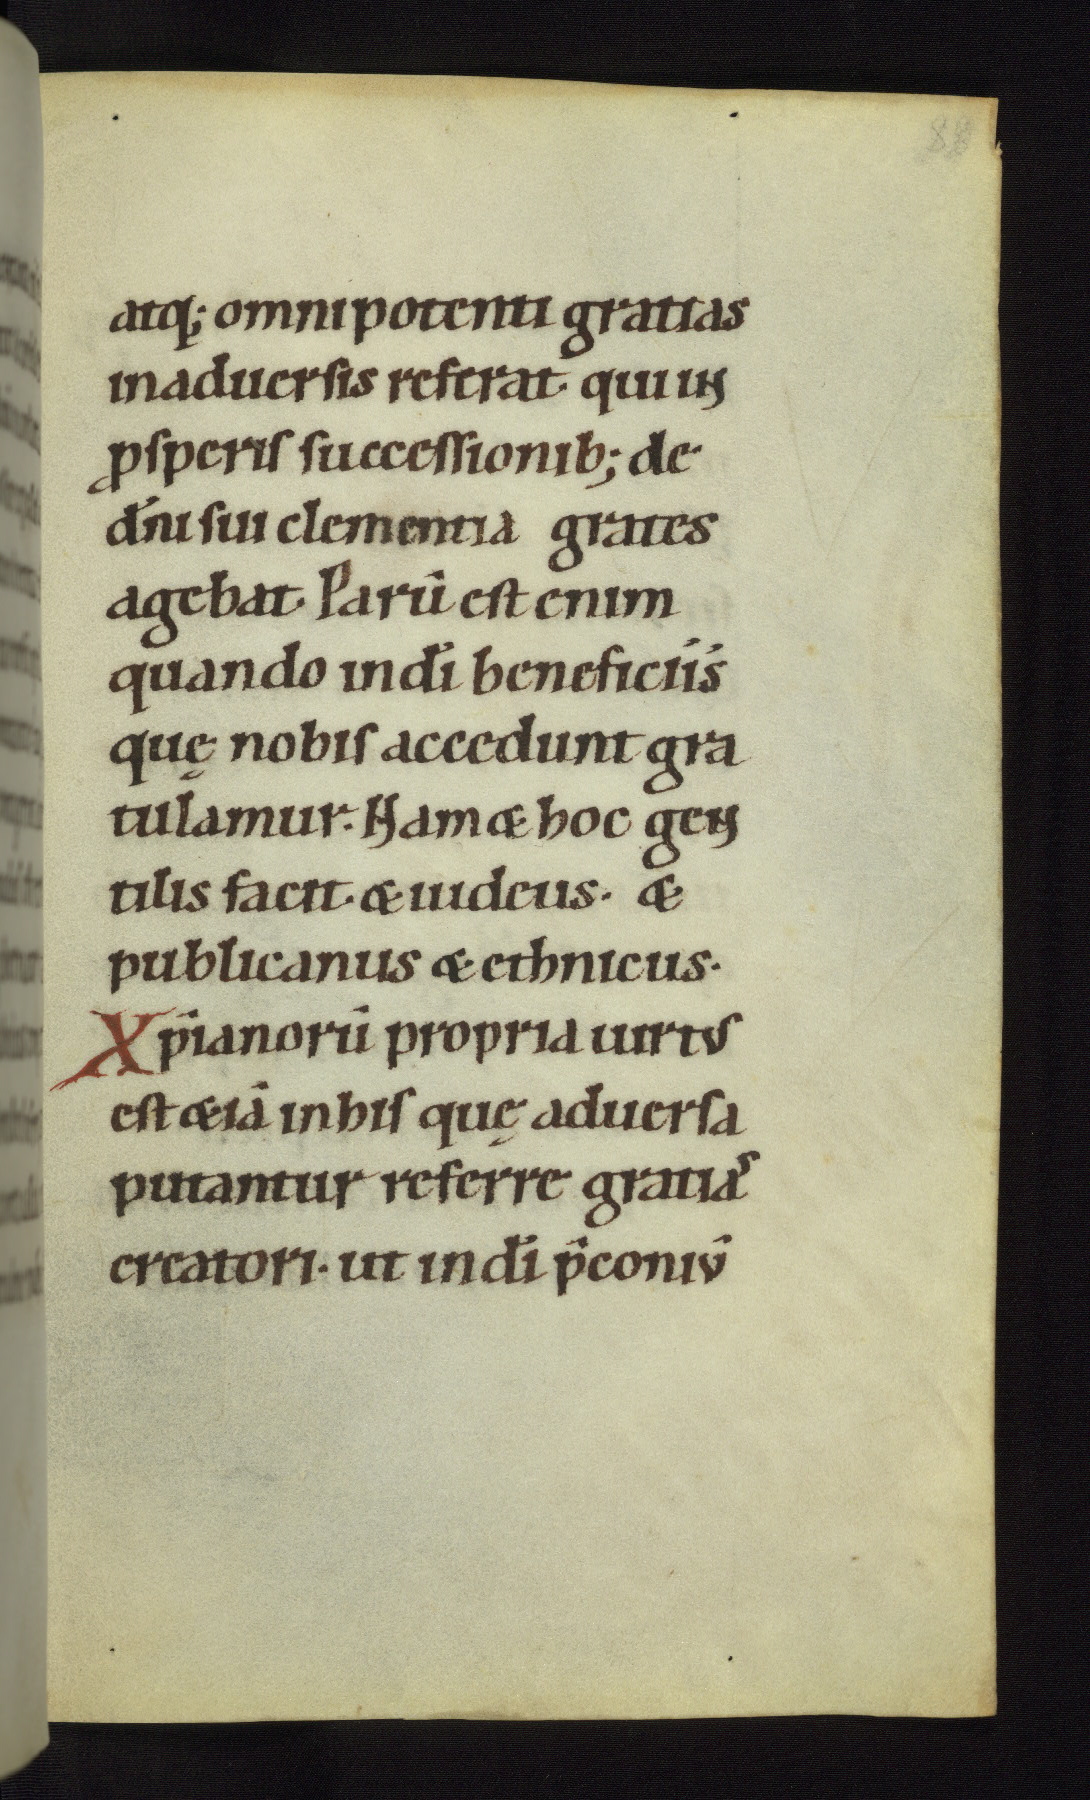 atq; omnipotenti gratias
inaduersis referat· qui in
ꝓsperis successionib; de
dñi sui clementia grates
agebat· Parū est enim
quando in dī beneficiis
quę nobis accedunt gra
tulamur· Nam & hoc gen
tilis facit· & iudeus· &
publicanus & ethnicus·
Xp̄ianorū propria uirtus
est &iā in his quę aduersa
putantur referre gratias
creatori· ut in dī p̄coniū